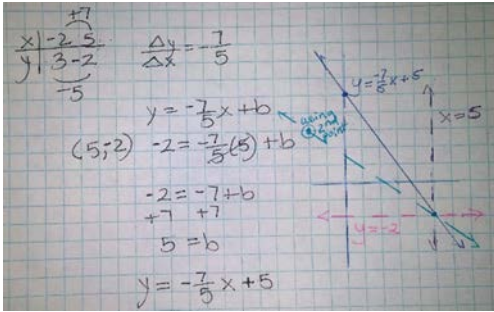 +7
x | -2 5
y | 3 -2
-5
Δy/Δx = -7/5
y = -7/5 x + b
using 2nd point
(5,-2) -2 = -7/5 (5) + b
-2 = -7 + b
+7 +7
5 = b
y = -7/5 x + 5
y = -7/5 x + 5
x = 5
y = -2